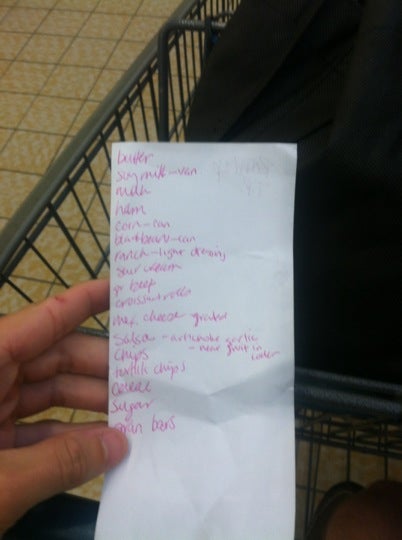 butter
soymilk-van
milk
ham
corn-can
black beans-can
ranch-light dressing
sour cream
gr beef
croissant rolls
mex. cheese grated
Salsa - artichoke garlic
chips - near fruit in
cooler
tortilla chips
Cereal
Sugar
gran bars